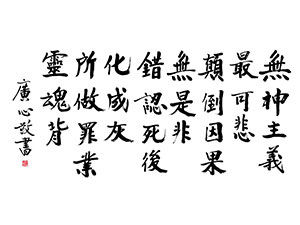 無神主義
最可悲
顛倒因果
無是非
錯認死後
化成灰
所做罪業
靈魂背
廣心敬書